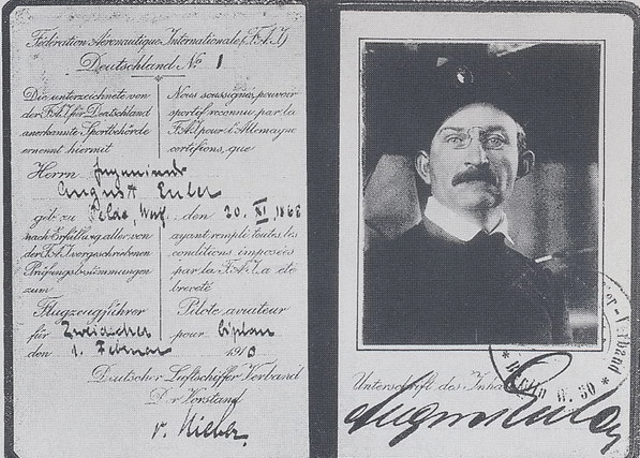 Fédération Aéronautique Internationale (F.A.I.)
Deutschland No 1
Die unterzeichnete von
der F.A.I. für Deutschland
anerkannte Sportbehörde
ernennt hiermit
Nous soussignés, pouvoir
sportif reconnu par la
F.A.I. pour l'Allemagne
certifions, que
Herrn Ingenieur
August Euler
geb. zu Oelde, Westf. den 20. XI. 1868
nach Erfüllung aller von
der F.A.I. vorgeschriebenen
Prüfungsbestimmungen
zum
ayant rempli toutes les
conditions imposées
par la F.A.I. a été
breveté
Flugzeugführer
für Zweidecker
den 1. Februar 1910
Pilote aviateur
pour biplan
Deutscher Luftschiffer Verband
Der Vorstand
v.
Unterschrift des Inhabers
August Euler
Verband
* Berlin W. 30 *